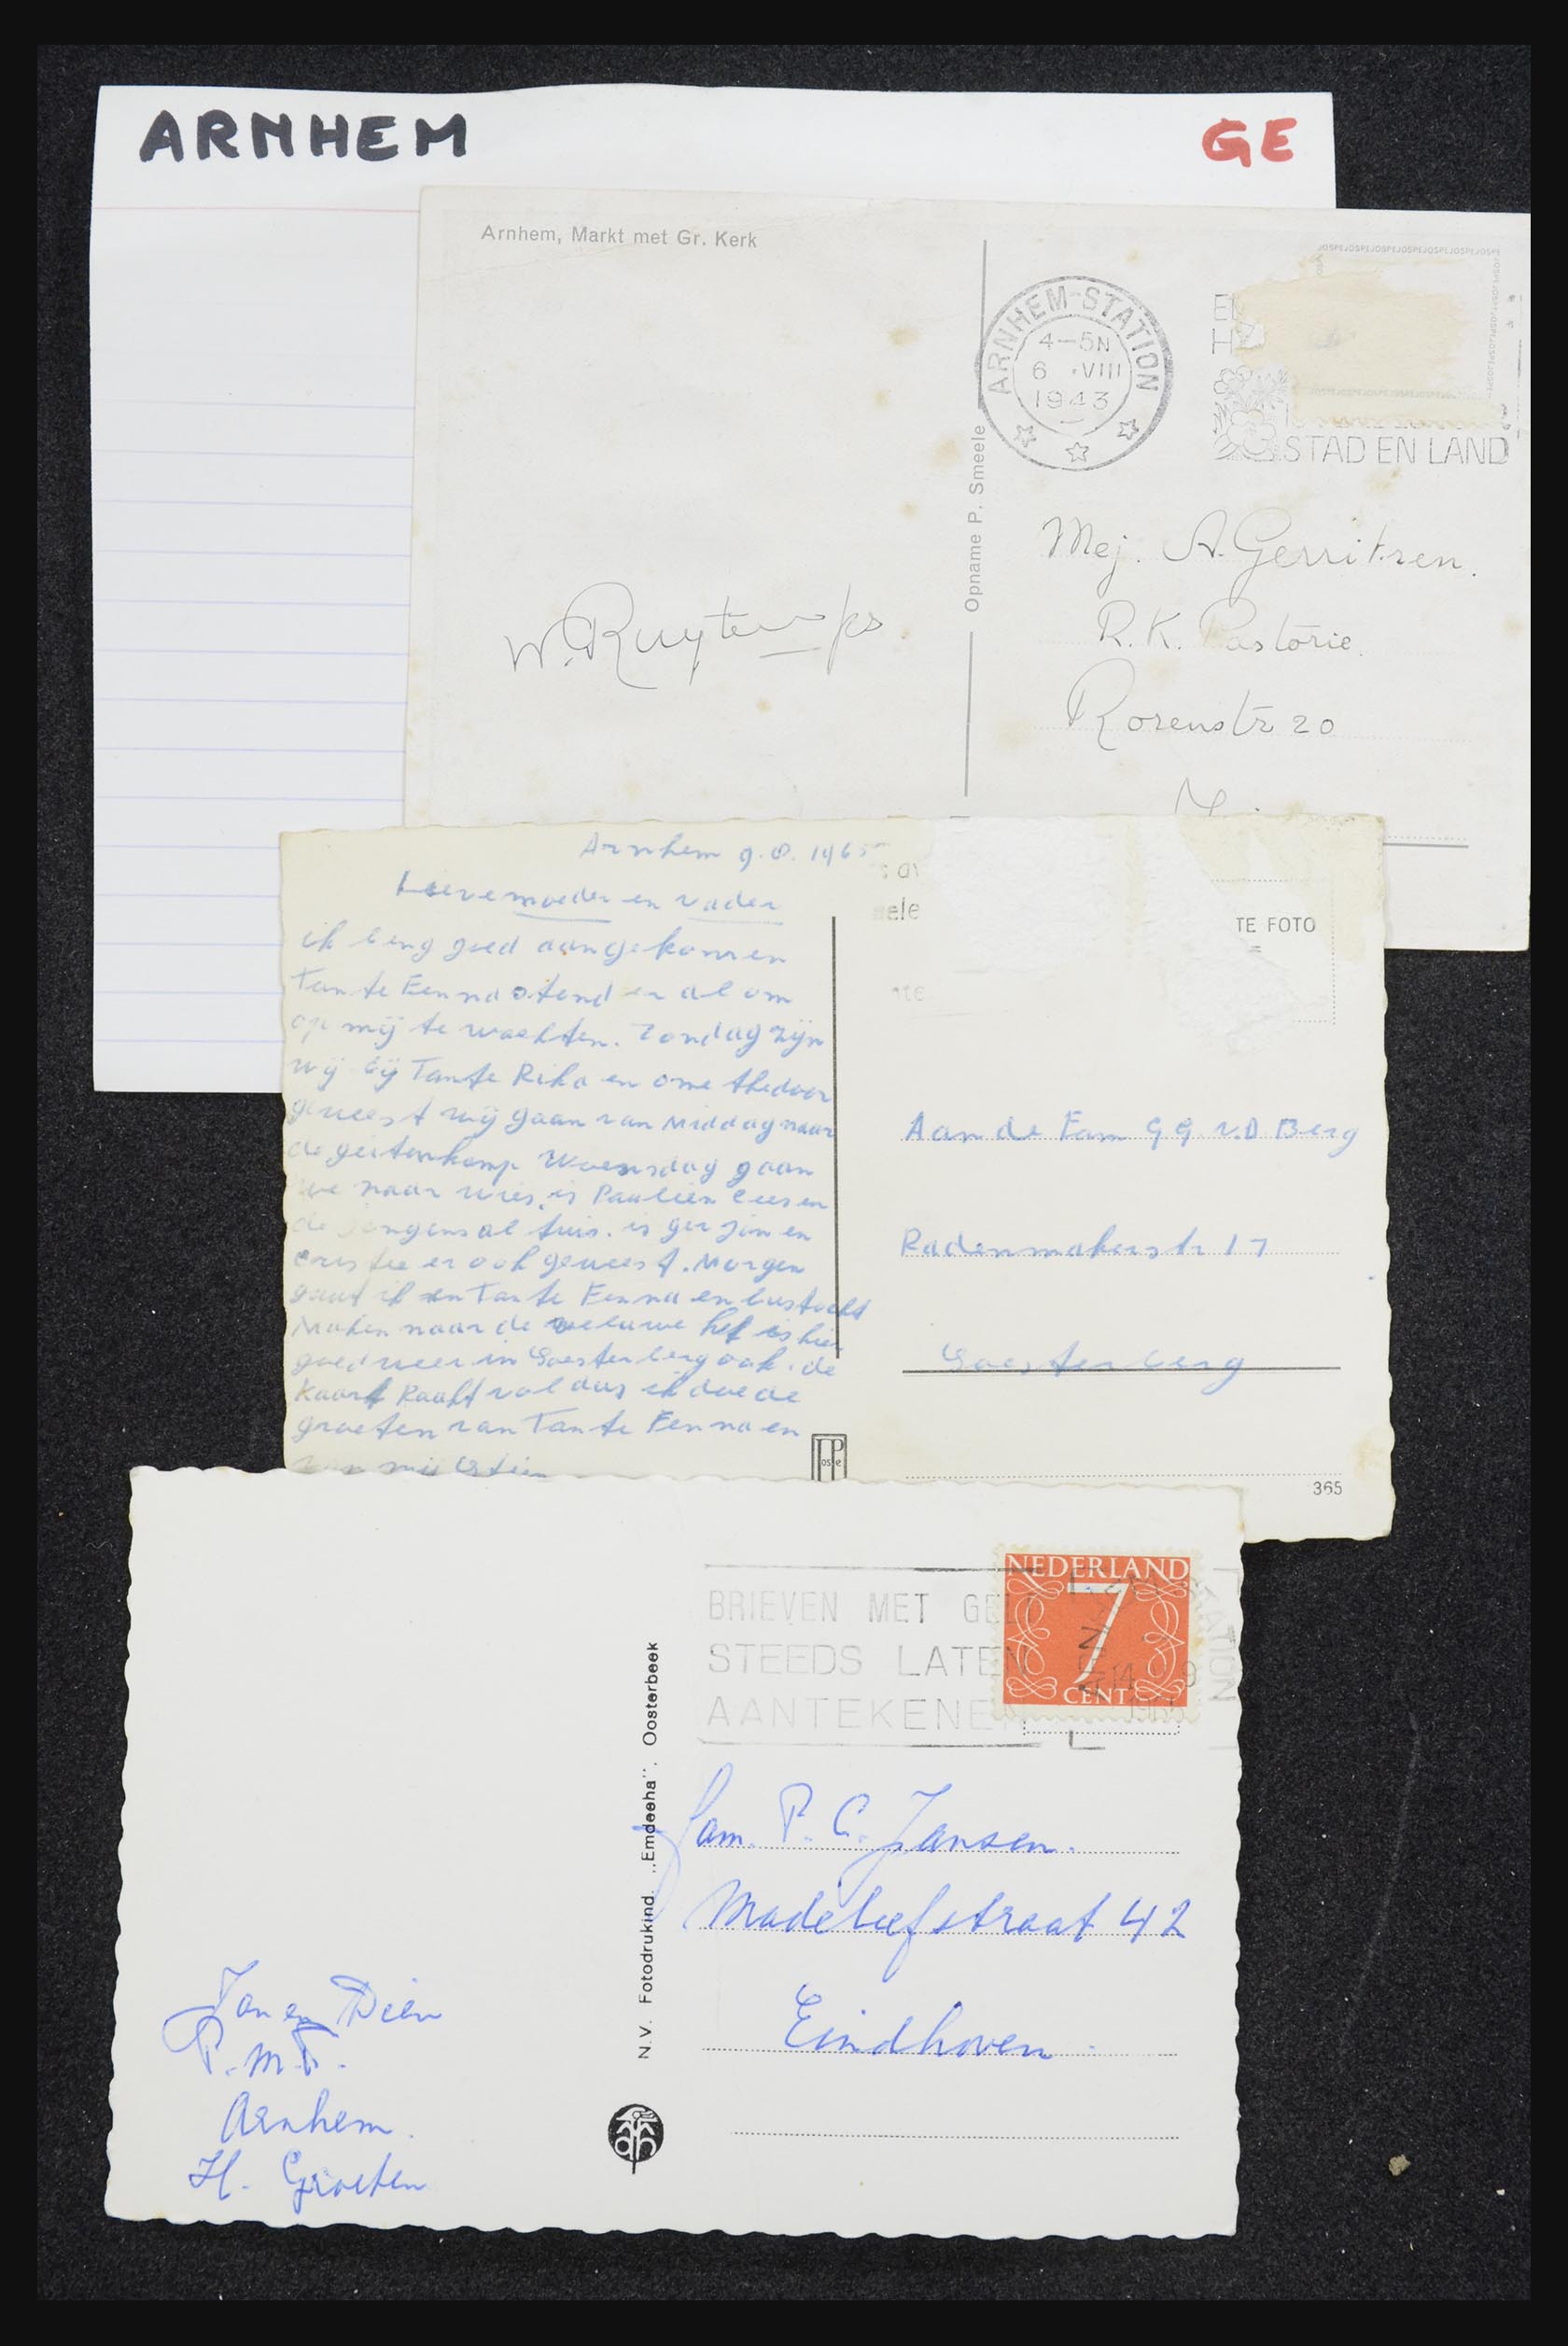 ARNHEM
GE
Arnhem, Markt met Gr. Kerk
JOSPEJOSPEJOSPEJOSPEJOSPEJOSPEJOSPE
ARNHEM-STATION
4-5N
6 ·VIII
1943
STAD EN LAND
Opname P. Smeele
W. Ruytenps
Mej. A. Gerritsen.
R.K. Pastorie.
Rozenstr 20
Arnhem 9.8.1965
Lieve moeder en vader
ik beng goed aangekomen
Tante Fenna stond er al om
op mij te wachten. Zondag zijn
wij bij Tante Rika en ome thedoor
geweest wij gaan van Middag naar
de geitenkamp Woensdag gaan
we naar wies. is Paulien cees en
de jongens al tuis. is ger jan en
er ook geweest. Morgen
gaat ik en Tante Fenna en bustocht
Maken naar de veluwe het is hier
goed weer in Soesterberg ook. de
kaart Raakt vol dus ik doe de
groeten van Tante Fenna en
van mij
TE FOTO
Aan de Fam G G. v.D Berg
Rademakerstr 17
Soesterberg
365
NEDERLAND
7
CENT
BRIEVEN MET GELD
STEEDS LATEN
AANTEKENEN
N.V. Fotodrukind. „Emdeeha". Oosterbeek
Fam. P. C. Jansen.
Madeliefstraat 42
Eindhoven.
Jan en Dien
P.M.T.
Arnhem.
H. Groeten